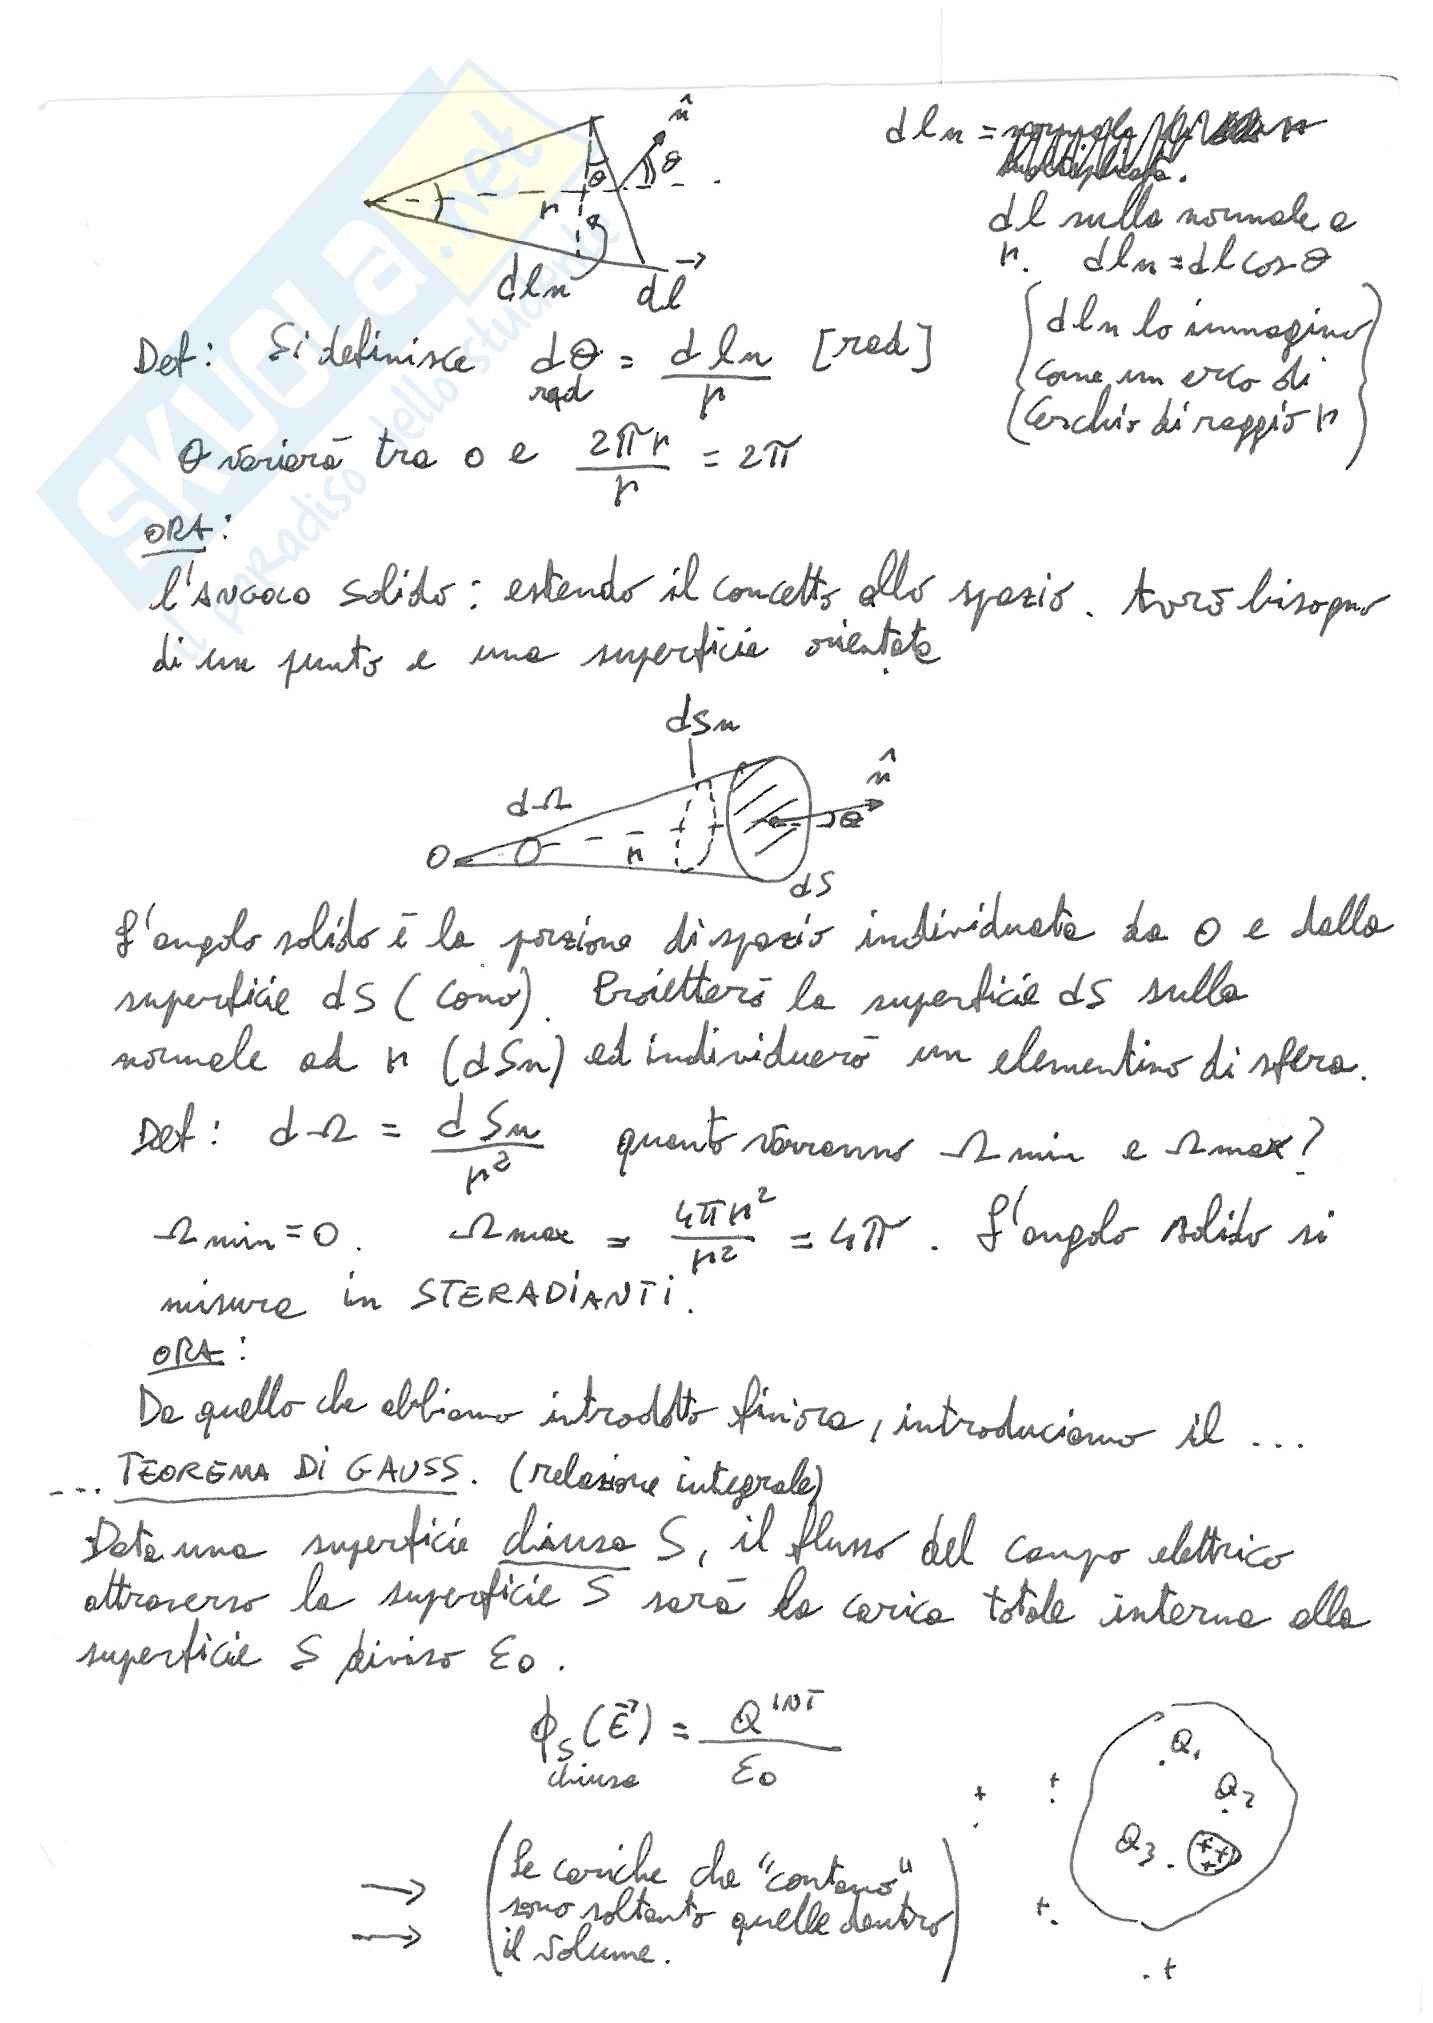 n̂
θ
θ
r
dln
dl
dln =
dl sulla normale a
r. dln = dl cos θ
dln lo immagino
come un arco di
cerchio di raggio r
Def: Si definisce dθ = dln / r [rad]
rad
θ varierà tra 0 e 2πr / r = 2π
ORA:
l'ANGOLO solido: estendo il concetto allo spazio. Avrò bisogno
di un punto e una superficie orientata
dSn
dΩ
n̂
θ
O
r
dS
L'angolo solido è la porzione di spazio individuata da O e dalla
superficie dS (cono). Proietterò la superficie dS sulla
normale ad r (dSn) ed individuerò un elementino di sfera.
Def: dΩ = dSn / r² quanto varranno Ωmin e Ωmax?
Ωmin = 0. Ωmax = 4πr² / r² = 4π. L'angolo solido si
misura in STERADIANTI.
ORA:
Da quello che abbiamo introdotto finora, introduciamo il ...
... TEOREMA DI GAUSS. (relazione integrale)
Data una superficie chiusa S, il flusso del campo elettrico
attraverso la superficie S sarà la carica totale interna alla
superficie S diviso ε0.
ϕS(E⃗) = Q^INT / ε0
chiusa
Q1
Q2
Q3
+ + + +
+ + +
→ (Le cariche che "contano"
→ sono soltanto quelle dentro
il volume.)
SKUOLA.net
il paradiso dello studente